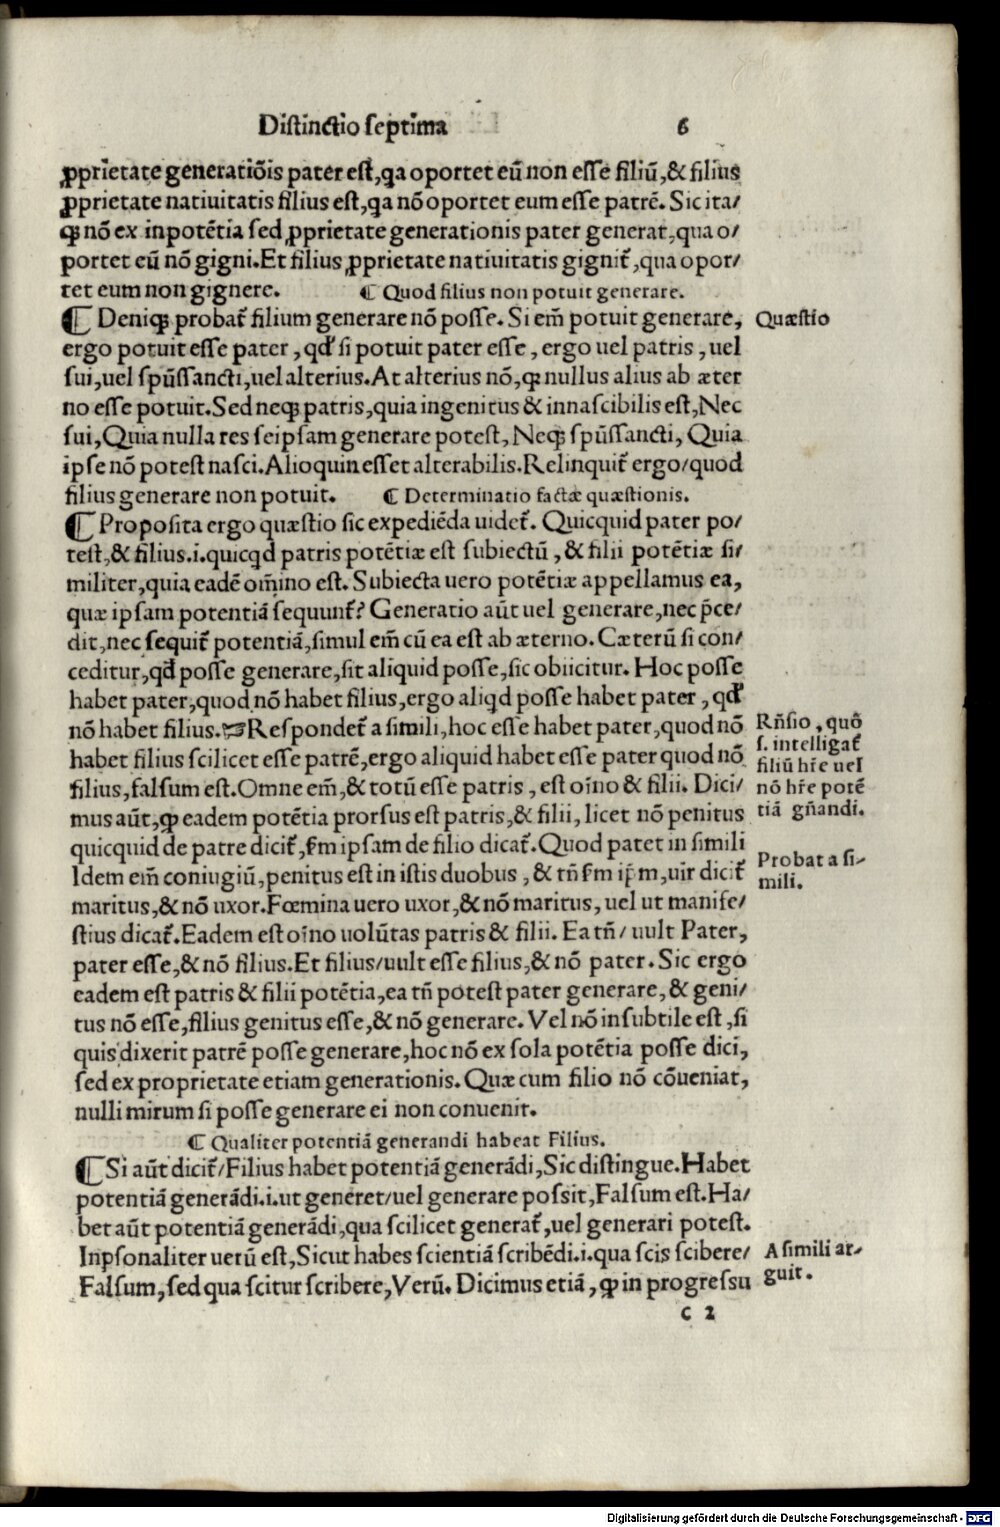 Distinctio septima 6
ꝓprietate generatiõis pater est, qa oportet eũ non esse filiũ, & filius
ꝓprietate natiuitatis filius est, qa nõ oportet eum esse patrẽ. Sic ita/
qꝫ nõ ex inpotẽtia sed ꝓprietate generationis pater generat, qua o/
portet eũ nõ gigni. Et filius ꝓprietate natiuitatis gignit̃, qua opor/
tet eum non gignere. ¶ Quod filius non potuit generare.
¶ Deniqꝫ probat̃ filium generare nõ posse. Si em̃ potuit generare,
ergo potuit esse pater, qđ si potuit pater esse, ergo uel patris, uel
sui, uel spũssancti, uel alterius. At alterius nõ, ꝙ nullus alius ab æter
no esse potuit. Sed neqꝫ patris, quia ingenitus & innascibilis est, Nec
sui, Quia nulla res seipsam generare potest, Neqꝫ spũssancti, Quia
ipse nõ potest nasci. Alioquin esset alterabilis. Relinquit̃ ergo/quod
filius generare non potuit. ¶ Determinatio factæ quæstionis.
¶ Proposita ergo quæstio sic expediẽda uidet̃. Quicquid pater po/
test, & filius .i. quicqd patris potẽtiæ est subiectũ, & filii potẽtiæ si/
militer, quia eadẽ om̃ino est. Subiecta uero potẽtiæ appellamus ea,
quæ ipsam potentiã sequunt̃? Generatio aũt uel generare, nec p̃ce/
dit, nec sequit̃ potentiã, simul em̃ cũ ea est ab æterno. Cæterũ si con/
ceditur, qđ posse generare, sit aliquid posse, sic obiicitur. Hoc posse
habet pater, quod nõ habet filius, ergo aliqd posse habet pater, qđ
nõ habet filius. ☞Respondet̃ a simili, hoc esse habet pater, quod nõ
habet filius scilicet esse patrẽ, ergo aliquid habet esse pater quod nõ
filius, falsum est. Omne em̃, & totũ esse patris, est oĩno & filii. Dici/
mus aũt, ꝙ eadem potẽtia prorsus est patris, & filii, licet nõ penitus
quicquid de patre dicit̃, s̃m ipsam de filio dicat̃. Quod patet in simili
Idem em̃ coniugiũ, penitus est in istis duobus, & tñ s̃m ip̃m, uir dicit̃
maritus, & nõ uxor. Fœmina uero uxor, & nõ maritus, uel ut manife/
stius dicat̃. Eadem est oĩno uolũtas patris & filii. Ea tñ/ uult Pater,
pater esse, & nõ filius. Et filius/uult esse filius, & nõ pater. Sic ergo
eadem est patris & filii potẽtia, ea tñ potest pater generare, & geni/
tus nõ esse, filius genitus esse, & nõ generare. Vel nõ insubtile est, si
quis dixerit patrẽ posse generare, hoc nõ ex sola potẽtia posse dici,
sed ex proprietate etiam generationis. Quæ cum filio nõ cõueniat,
nulli mirum si posse generare ei non conuenit.
¶ Qualiter potentiã generandi habeat Filius.
¶ Si aũt dicit̃/Filius habet potentiã generãdi, Sic distingue. Habet
potentiã generãdi .i. ut generet/uel generare possit, Falsum est. Ha/
bet aũt potentiã generãdi, qua scilicet generat̃, uel generari potest.
Inpsonaliter uerũ est, Sicut habes scientiã scribẽdi .i. qua scis scibere/
Falsum, sed qua scitur scribere, Verũ. Dicimus etiã, ꝙ in progressu
c 2
Quæstio
Rñsio, quõ
s. intelligat̃
filiũ hr̃e uel
nõ hr̃e potẽ
tiã gñandi.
Probat a si-
mili.
A simili ar-
guit.
Digitalisierung gefördert durch die Deutsche Forschungsgemeinschaft - DFG